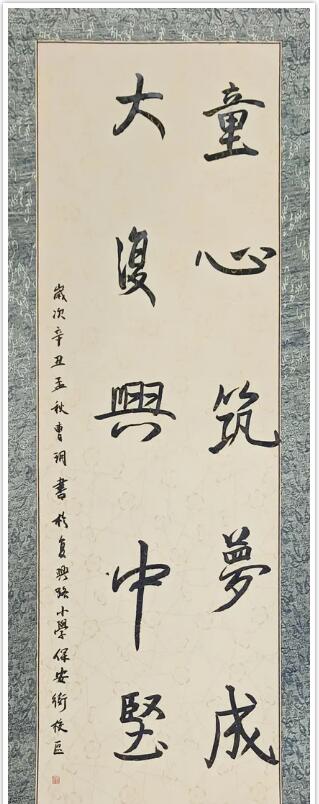 童心筑夢成
大復興中堅
歲次辛丑孟秋曹玥書於复興路小學保安街校區